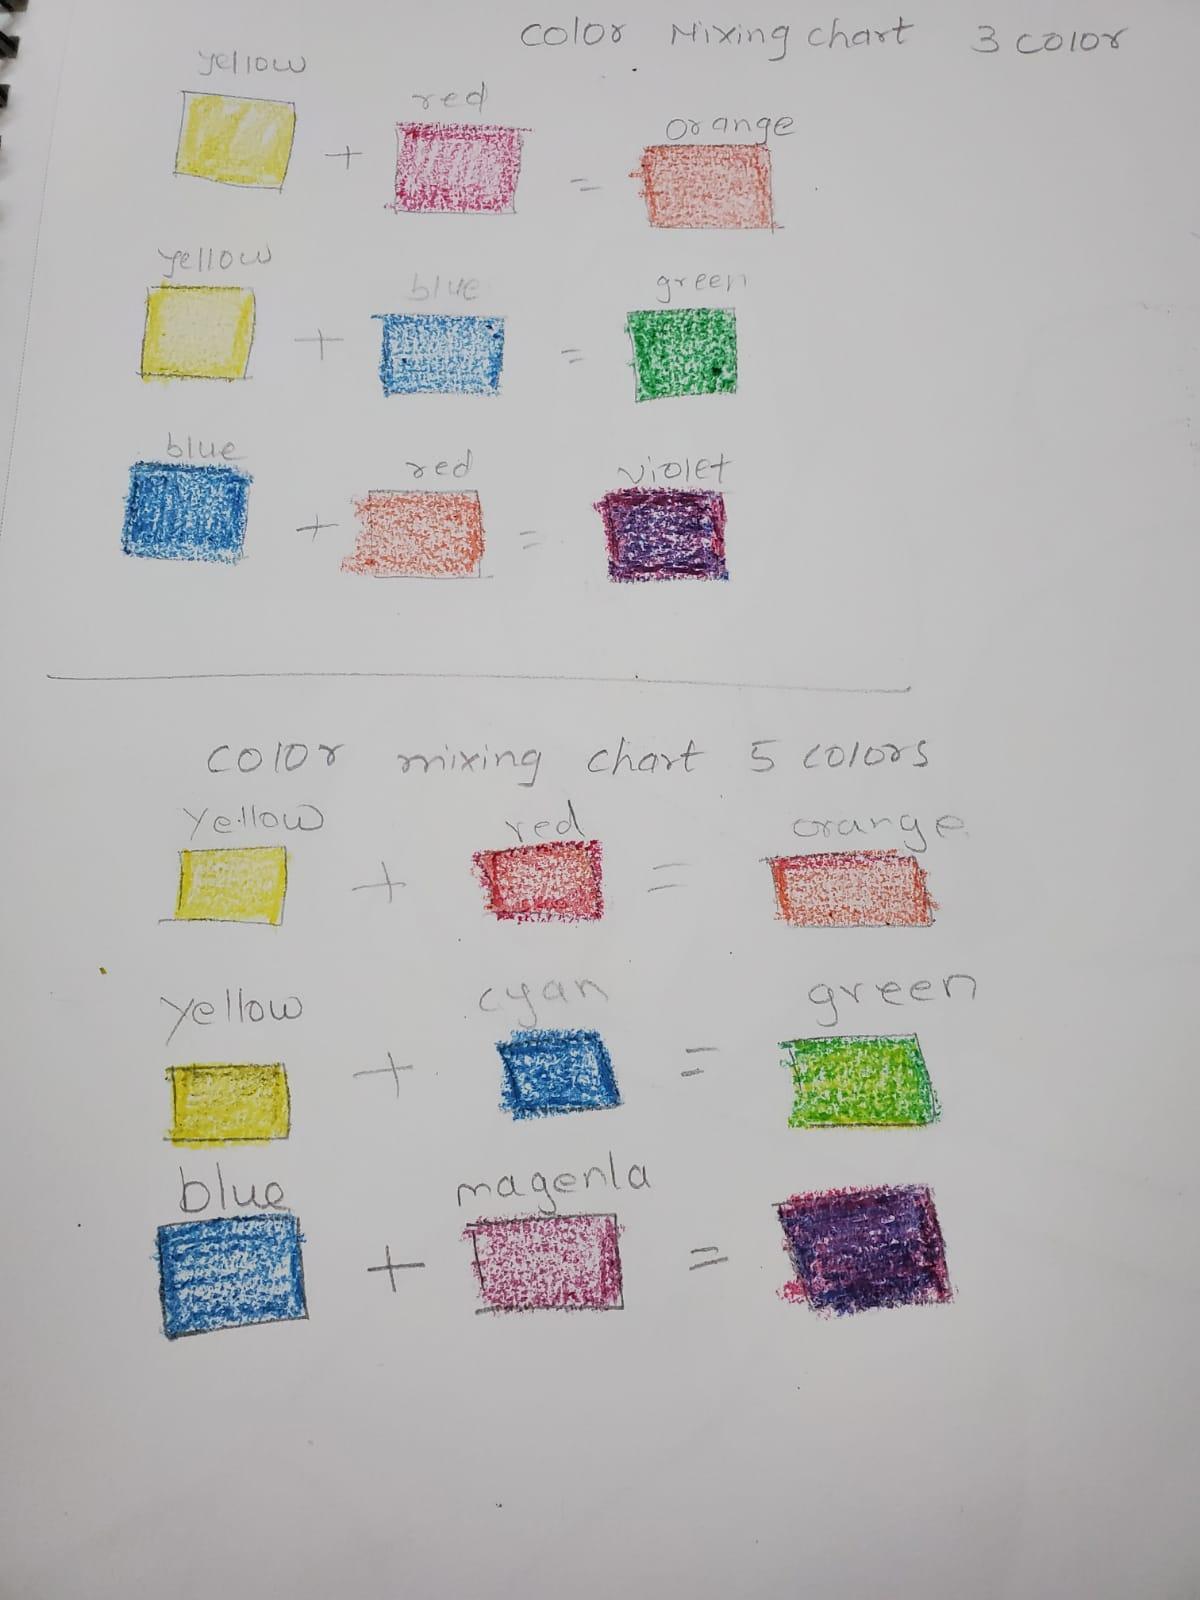 color Mixing chart 3 color
yellow
+ red = orange
yellow
+ blue = green
blue
+ red = violet
color mixing chart 5 colors
yellow + red = orange
yellow + cyan = green
blue + magenla =